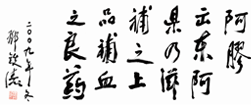 阿膠
出东阿
果乃滋
補之上
品補血
之良药
二〇〇九年冬